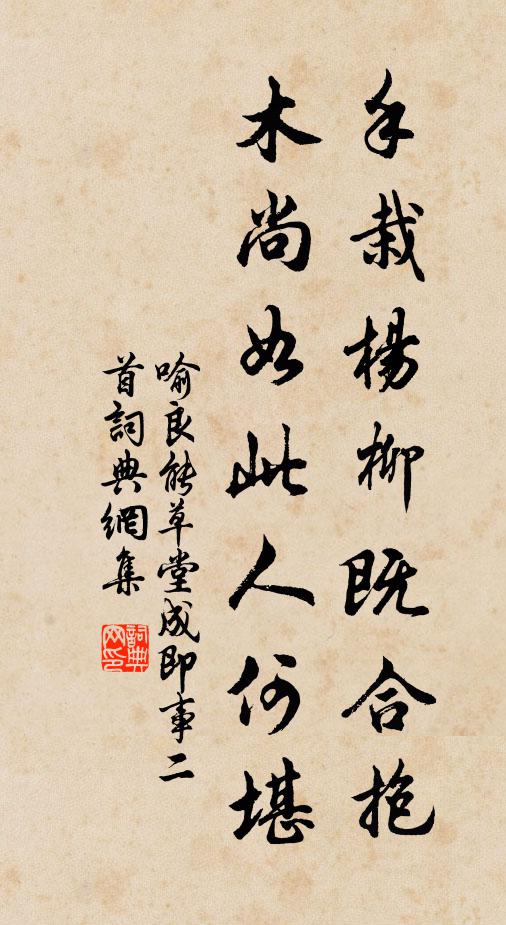 手栽楊柳既合抱
木尚如此人何堪
喻良能草堂成即事二
首詞典網集
詞典網印